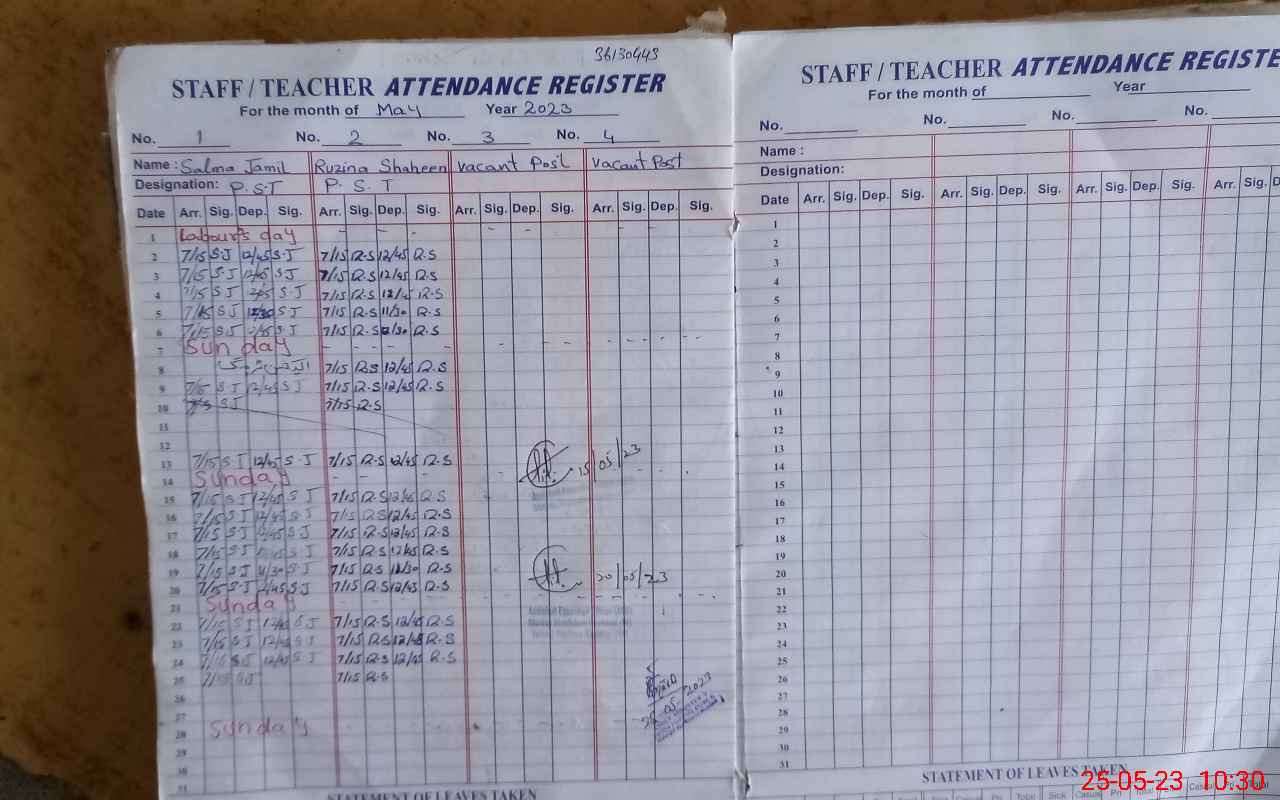 36130443
STAFF / TEACHER ATTENDANCE REGISTER
For the month of May Year 2023
No. 1 No. 2 No. 3 No. 4
Name : Salma Jamil Ruzina Shaheen Vacant Post Vacant Post
Designation: P.S.T P.S.T
Date Arr. Sig. Dep. Sig. Arr. Sig. Dep. Sig. Arr. Sig. Dep. Sig. Arr. Sig. Dep. Sig.
1 Labour's day
2 7/15 S.J 12/45 S.J 7/15 R.S 12/45 R.S
3 7/15 S.J 12/45 S.J 7/15 R.S 12/45 R.S
4 7/15 S.J 12/45 S.J 7/15 R.S 12/45 R.S
5 7/15 S.J 7/15 R.S 11/30 R.S
6 7/15 S.J 12/45 S.J 7/15 R.S R.S
7 Sunday
8 7/15 R.S 12/45 R.S
9 7/15 S.J 12/45 S.J 7/15 R.S 12/45 R.S
10 S.J 7/15 R.S
11
12
13 7/15 S.J 12/45 S.J 7/15 R.S 12/45 R.S 15/05/23
14 Sunday
15 7/15 S.J 12/45 S.J 7/15 R.S 12/45 R.S
16 7/15 S.J 12/45 S.J 7/15 R.S 12/45 R.S
17 7/15 S.J 12/45 S.J 7/15 R.S 12/45 R.S
18 7/15 S.J 12/45 S.J 7/15 R.S 12/45 R.S
19 7/15 S.J 11/30 S.J 7/15 R.S 11/30 R.S
20 7/15 S.J 12/45 S.J 7/15 R.S 12/45 R.S 20/05/23
21 Sunday
22 7/15 S.J 12/45 S.J 7/15 R.S 12/45 R.S
23 7/15 S.J 12/45 S.J 7/15 R.S 12/45 R.S
24 7/15 S.J 12/45 S.J 7/15 R.S 12/45 R.S
25 7/15 S.J 7/15 R.S
26
27 25.05.2023
28 Sunday
29
30
31
STATEMENT OF LEAVES TAKEN
STAFF / TEACHER ATTENDANCE REGISTE
For the month of Year
No. No. No. No.
Name :
Designation:
Date Arr. Sig. Dep. Sig. Arr. Sig. Dep. Sig. Arr. Sig. Dep. Sig. Arr. Sig. D
1
2
3
4
5
6
7
8
9
10
11
12
13
14
15
16
17
18
19
20
21
22
23
24
25
26
27
28
29
30
31
STATEMENT OF LEAVES TAKEN
25-05-23 10:30